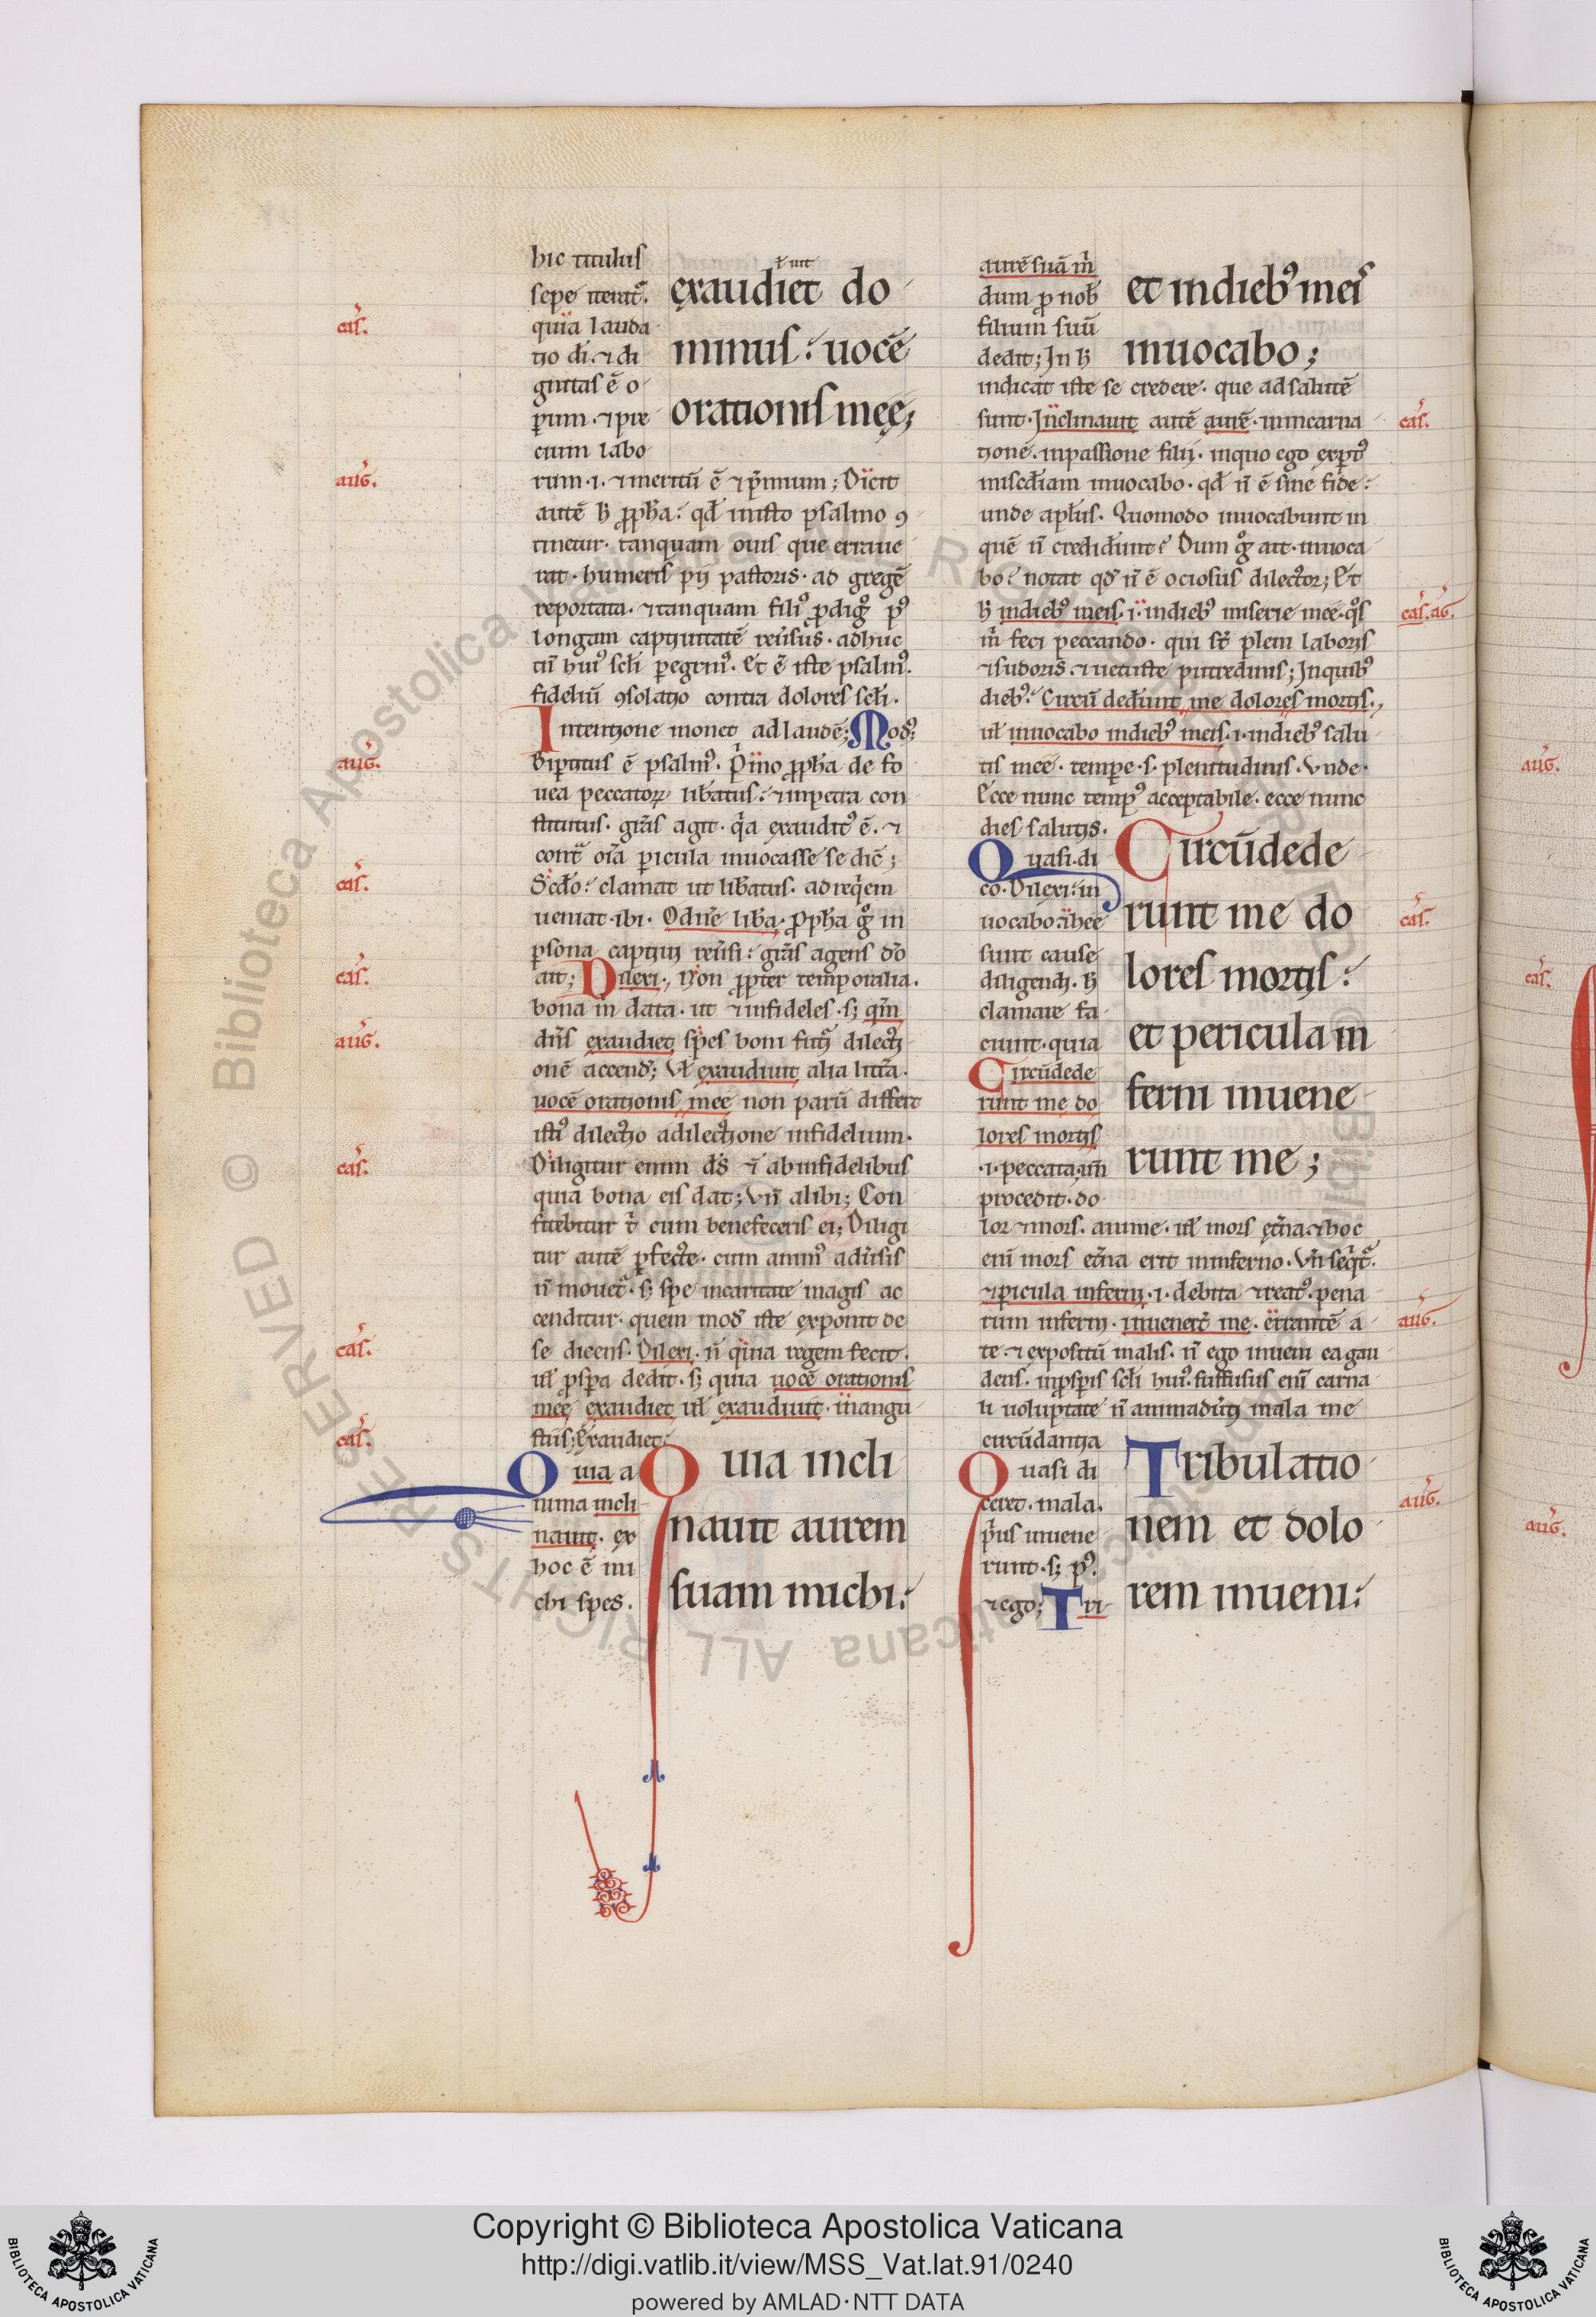 hic titulus
sepe iterat᷑.
quia lauda
tio di. ⁊ di
gnitas ē o
ꝑum. ⁊ p̄re
cium labo
rum .i. ⁊ meritū ē ⁊ p̄mium; Dicit
autē h̄ ꝓph̄a. qd̄ in isto psalmo ꝯ
tinetur. tanquam ouis que erraue
rat. humeris pij pastoris. ad gregē
reportata. ⁊ tanquam filiꝰ ꝓdigꝰ pꝰ
longam captiuitatē reūsus. adhuc
tn̄ huiꝰ scl̄i ꝑegrinꝰ. Et ē iste psalmꝰ.
fidelium ꝯsolatio contra dolores scl̄i.
Intentione monet ad laudē; Modꝰ.
Bipꝑtitus ē psalmꝰ. Primo ꝓph̄a de fo
uea peccatoꝝ lib̄atus. ⁊ in petra con
stitutus. grās agit. q̄a exauditꝰ ē. ⁊
cont̄ oīa ꝑicula inuocasse se dic̄;
Scd̄o. clamat ut lib̄atus. ad req̄em
ueniat. ibi. O dn̄e lib̄a. ꝓph̄a gͦ in
ꝑsona captiui reūsi. grās agens dō
ait; Dilexi. Non ꝓpter temporalia.
bona in data. ut ⁊ infideles. sꝫ qm̄
dn̄s exaudiet spes boni futi dilecti
onē accend̄; Vl̄ exaudiuit alia litt̄a.
uocē orationis mee non parū differt
istiꝰ dilectio a dilectione infidelium.
Diligitur enim d̄s ⁊ ab infidelibus
quia bona eis dat; Vn̄ alibi; Con
fitebitur t̄ cum benefeceris ei; Diligi
tur autē ꝑfecte. cum animꝰ aduersis
n̄ mouet᷑. sꝫ spe in caritate magis ac
cenditur. quem mod̄ iste exponit de
se dicens. Dilexi. n̄ quia regem fecit.
ul̄ ꝓspa dedit. sꝫ quia uocē orationis
meę exaudiet ul̄ exaudiuit. in angu
stiis; Exaudiet.
Quia a
nima incli
nauit. ex
hoc ē mi
chi spes.
ł uit
exaudiet do
minus. uocē
orationis meę;
Quia incli
nauit aurem
suam michi.
aurē suā m̄
dum ꝓ nob̄
filium suū
dedit; In h̄
indicat iste se credere. que ad salutē
sunt. Inclinauit autē aurē. in incarna
tione. in passione filij. in quo ego exꝑtꝰ
misc̄diam inuocabo. qd̄ n̄ ē sine fide.
unde apl̄us. Quomodo inuocabunt in
quē n̄ credider̄unt? Dum gͦ ait. inuoca
bo. notat qd̄ n̄ ē ociosus dilector; Et
h̄ in diebꝰ meis .i. in diebꝰ miserie mee. qͦs
m̄ feci peccando. qui st̄ pleni laboris
⁊ sudoris. ⁊ uetuste putredinis; In quibꝰ
diebꝰ. Circū dederunt me dolores mortis.
ul̄ inuocabo in diebꝰ meis .i. in diebꝰ salu
tis mee. tempe .s. plenitudinis. Vnde.
Ecce nunc tempꝰ acceptabile. ecce nunc
dies salutis.
Quasi di
co. Dilexi. in
uocabo. ⁊ hee
sunt cause
diligendi. h̄
clamare fa
ciunt. quia
Circūdede
runt me do
lores mortis
.i. peccata. un̄
procedit. do
lor ⁊ mors. anime. ul̄ mors et̄na. ⁊ hoc
eni mors et̄na erit in inferno. Vn̄ seqit᷑.
⁊ ꝑicula inferni .i. debita ⁊ reatꝰ. pena
rum inferni. inuener̄t me. errantē a
te. ⁊ expositū malis. n̄ ego inueni ea gau
dens. in ꝓsꝑis scl̄i huiꝰ. suffusus eni carna
li uoluptate n̄ animaduerti mala me
circūdantia
Quasi di
ceret. mala.
prius inuene
runt. sꝫ pꝰ.
⁊ ego; Tri
et in diebꝰ meis
inuocabo;
Circūdede
runt me do
lores mortis.
et pericula in
ferni inuene
runt me;
Tribulatio
nem et dolo
rem inueni.
cas̄.
auḡ.
auḡ.
cas̄.
cas̄.
auḡ.
cas̄.
cas̄.
cas̄.
cas̄.
cas̄. aḡ.
cas̄.
auḡ.
auḡ.
auḡ.
cas̄.
auḡ.
Copyright © Biblioteca Apostolica Vaticana
http://digi.vatlib.it/view/MSS_Vat.lat.91/0240
powered by AMLAD·NTT DATA
BIBLIOTECA APOSTOLICA VATICANA
BIBLIOTECA APOSTOLICA VATICANA
© Biblioteca Apostolica Vaticana ALL RIGHTS RESERVED